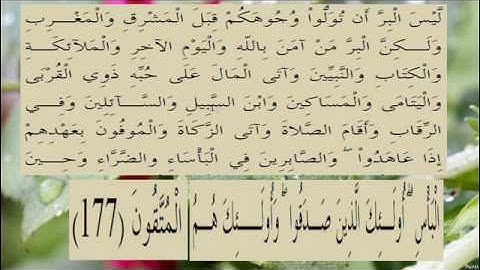 لَّيْسَ الْبِرَّ أَن تُوَلُّوا وُجُوهَكُمْ قِبَلَ الْمَشْرِقِ وَالْمَغْرِبِ
وَلَـكِنَّ الْبِرَّ مَنْ آمَنَ بِاللّهِ وَالْيَوْمِ الآخِرِ وَالْمَلآئِكَةِ
وَالْكِتَابِ وَالنَّبِيِّينَ وَآتَى الْمَالَ عَلَى حُبِّهِ ذَوِي الْقُرْبَى
وَالْيَتَامَى وَالْمَسَاكِينَ وَابْنَ السَّبِيلِ وَالسَّآئِلِينَ وَفِي
الرِّقَابِ وَأَقَامَ الصَّلاةَ وَآتَى الزَّكَاةَ وَالْمُوفُونَ بِعَهْدِهِمْ
إِذَا عَاهَدُواْ ۖ وَالصَّابِرِينَ فِي الْبَأْسَاء والضَّرَّاء وَحِينَ
الْبَأْسِ ۗ أُولَـئِكَ الَّذِينَ صَدَقُوا ۖ وَأُولَـئِكَ هُمُ الْمُتَّقُونَ (177)